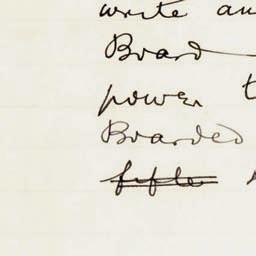 write an
Board
power t
Boarded
fifle